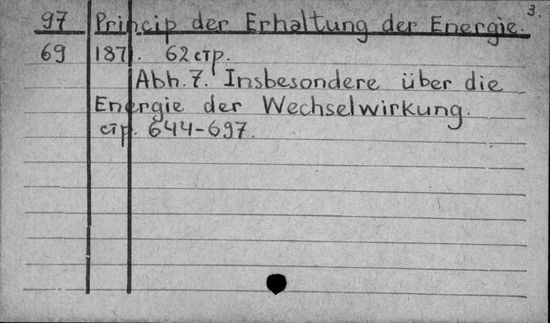 3.
97 Princip der Erhaltung der Energie.
69 187. 62 стр.
Abh. 7. Insbesondere über die
Energie der Wechselwirkung.
стр. 644-697.